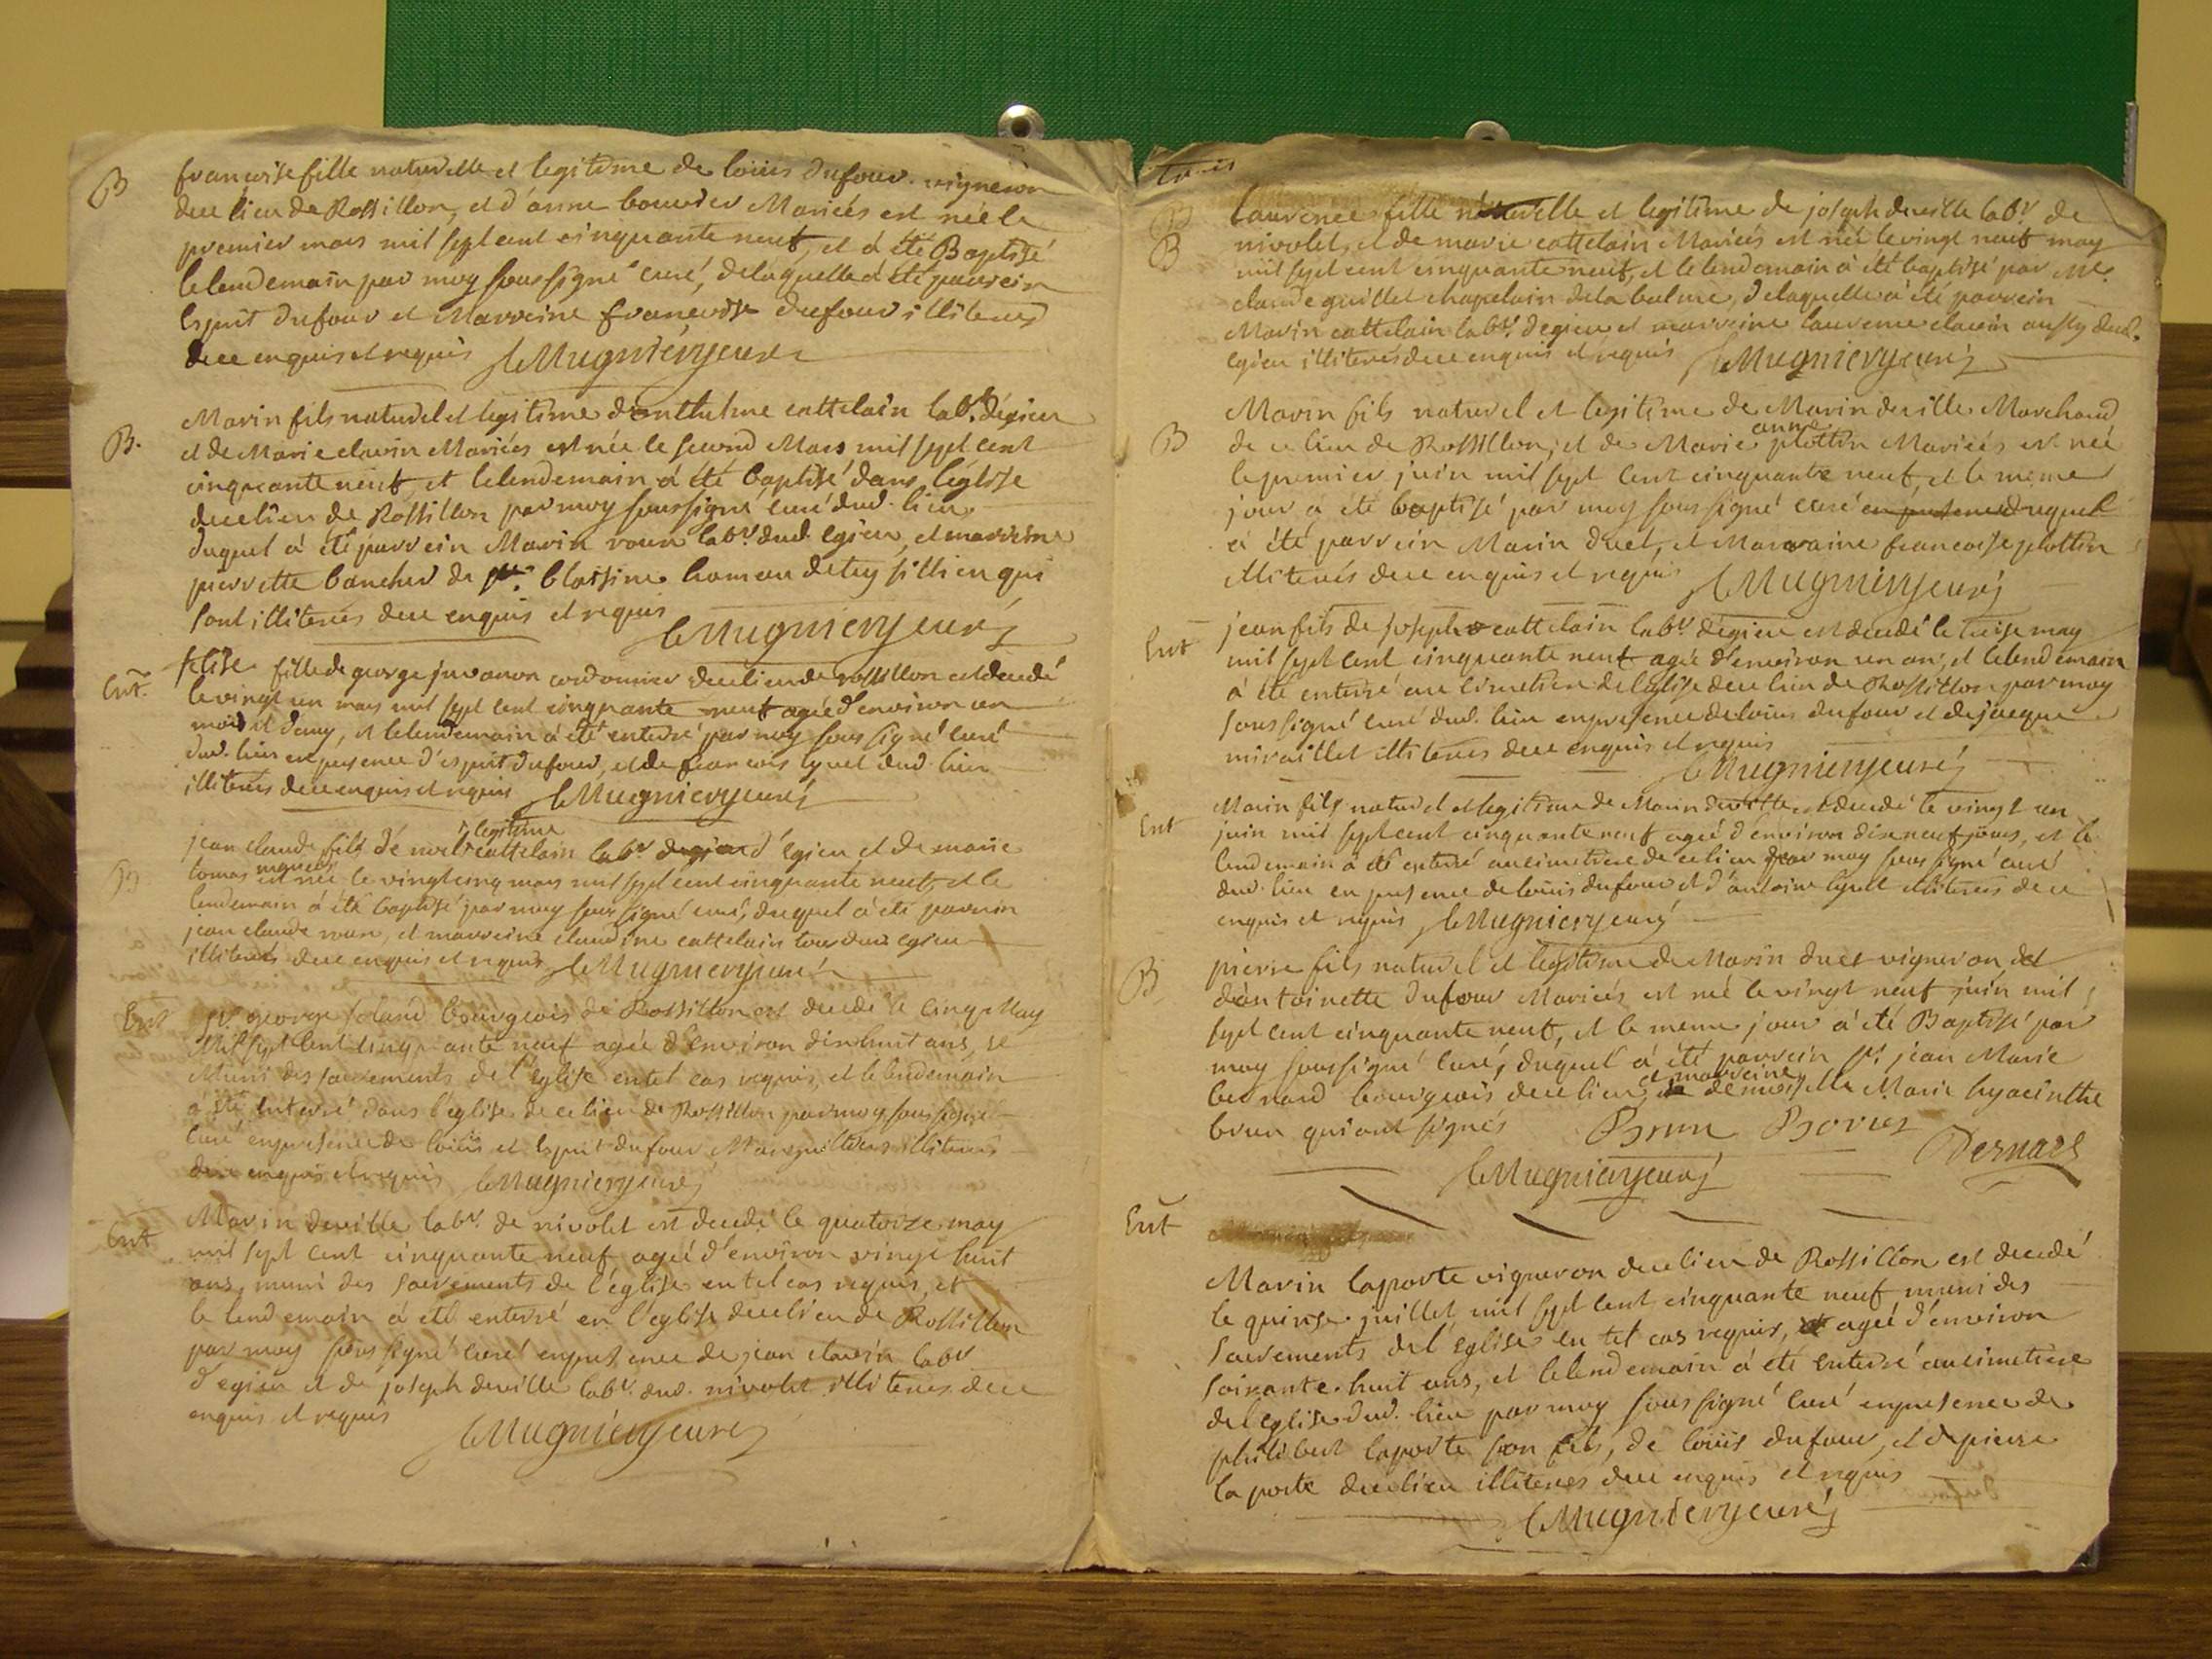 B
francoise fille naturelle et legitime de loüis Dufour vigneron
de ce lieu de Rossillon, et d'anne bouvier Mariés est née le
premier mars mil sept cent cinquante neuf, et à été Baptisé
le lendemain par moy soussigné curé, de laquelle à été parrein
Esprit dufour et Marreine francoise dufour illiterés
de ce enquis et requis leMugnieryjcuré
B.
Marin fils naturel et legitime d'anthelme cattelain labr. d'égieu
et de Marie clavin Mariés est née le second Mars mil sept cent
cinquante neuf, et le lendemain à été baptisé dans l'église
de ce lieu de Rossillon par moy soussigné curé dud. lieu
duquel à été parrein Marin roux labr. dud. egieu, et marreine
pierrette bancher de
sont illiterés de ce enquis et requis
leMugnieryjcuré
Ent.
felise fille de george juvanon cordonnier de ce lieu de rossillon est decedé
le vingt un mars mil sept cent cinquante neuf agée d'environ un
mois et demy, et le lendemain à été enterré par moy soussigné curé
dud. lieu en presence d'esprit dufour, et de francois lyvet dud. lieu
illiterés de ce enquis et requis leMugnieryjcuré
B
legitime
jean claude fils de noel cattelain labr. d'egieu et de marie
tomas mariés est née le vingt cinq mars mil sept cent cinquante neuf, et le
lendemain à été baptisé par moy soussigné curé, duquel à été parrein
jean claude roux, et marreine claudine cattelain tous dud. egieu
illiterés de ce enquis et requis leMugnieryjcuré
Ent
sr. george soland bourgeois de Rossillon est decedé le cinq May
Mil sept cent cinquante neuf agée d'environ dix huit ans, se
Muni des sacrements de l'église en tel cas requis, et le lendemain
à été enterré dans l'église de ce lieu de Rossillon par moy soussigné
curé en presence de loüis et Esprit dufour Marguilliers illiterés
de ce enquis et requis leMugnieryjcuré
Ent
Marin deville labr. de nivolet est decedé le quatorze may
mil sept cent cinquante neuf agée d'environ vingt huit
ans, muni des sacrements de l'église en tel cas requis, et
le lendemain à été enterré en l'église de ce lieu de Rossillon
par moy soussigné curé en presence de jean clavin labr.
d'egieu et de joseph deville labr. dud. nivolet illiterés de ce
enquis et requis
leMugnieryjcuré
B
B
laurence fille naturelle et legitime de joseph deville labr. de
nivolet, et de marie cattelain Mariés est née le vingt neuf may
mil sept cent cinquante neuf, et le lendemain à été baptisé par Mre.
claude guillet chapelain de la balme, de laquelle à été parrein
Marin cattelain labr. d'egieu et marreine laurence clavin aussy dud.
egieu illiterés de ce enquis et requis leMugnieryjcuré
B
Marin fils naturel et legitime de Marin deville Marchand
anne
de ce lieu de Rossillon, et de Marie plottin Mariés est née
le premier juin mil sept cent cinquante neuf, et le meme
jour à été baptisé par moy soussigné curé en presence duquel
à été parrein Marin duet, et Marraine francoise plottin
illiterés de ce enquis et requis leMugnieryjcuré
Ent
jean fils de joseph cattelain labr. d'egieu est decedé le treise may
mil sept cent cinquante neuf agée d'environ un an, et le lendemain
à été enterré au cimetiere de l'église de ce lieu de Rossillon par moy
soussigné curé dud. lieu en presence de loüis dufour et de jacque
miraillet illiterés de ce enquis et requis
leMugnieryjcuré
Ent
Marin fils naturel et legitime de Marin deville est decedé le vingt un
juin mil sept cent cinquante neuf agée d'environ dix neuf jours, et le
lendemain à été enterré au cimetiere de ce lieu par moy soussigné curé
dud. lieu en presence de loüis dufour et d'antoine lyvet illiterés de ce
enquis et requis leMugnieryjcuré
B
pierre fils naturel et legitime de Marin duet vigneron et
d'antoinette dufour Mariés est né le vingt neuf juin mil
sept cent cinquante neuf, et le meme jour à été Baptisé par
moy soussigné curé, duquel à été parrein sr. jean Marie
et marreine
bernard bourgeois de ce lieu, demoiselle Marie hyacinthe
brun qui ont signés Brun Borier
Bernard
leMugnieryjcuré
Ent
Marin laporte vigneron de ce lieu de Rossillon est decedé
le quinse juillet mil sept cent cinquante neuf muni des
sacrements de l'église en tel cas requis, et agée d'environ
soixante huit ans, et le lendemain à été enterré au cimetiere
de l'église dud. lieu par moy soussigné curé en presence de
philibert laporte son fils, de loüis dufour, et de pierre
la porte de ce lieu illiterés de ce enquis et requis
leMugnieryjcuré